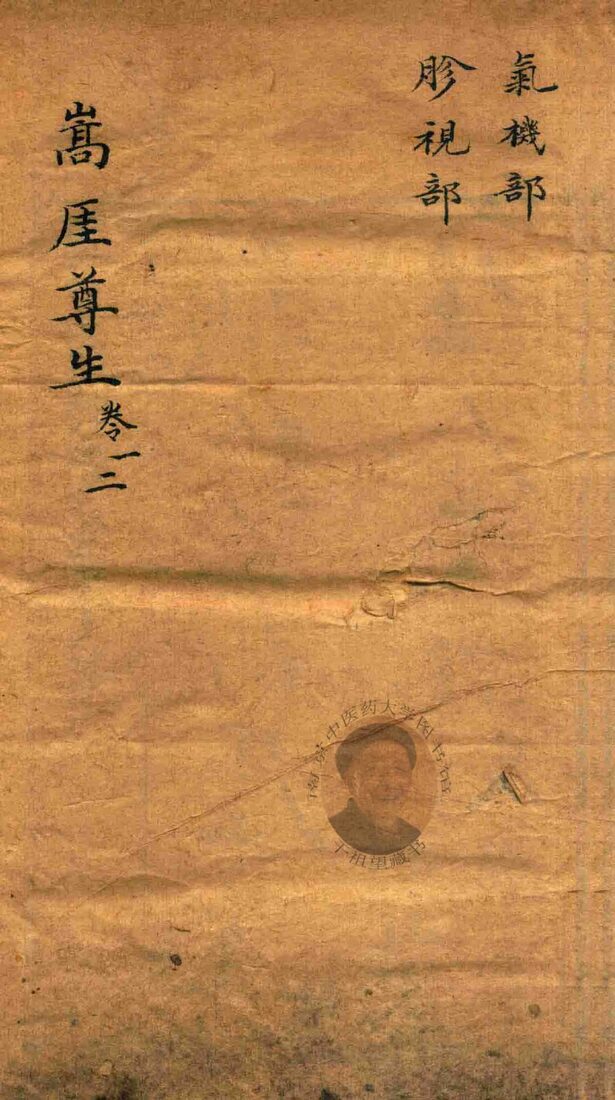 氣機部
胗視部
嵩厓尊生 卷一二
南京中医药大学图书馆
干祖望藏书